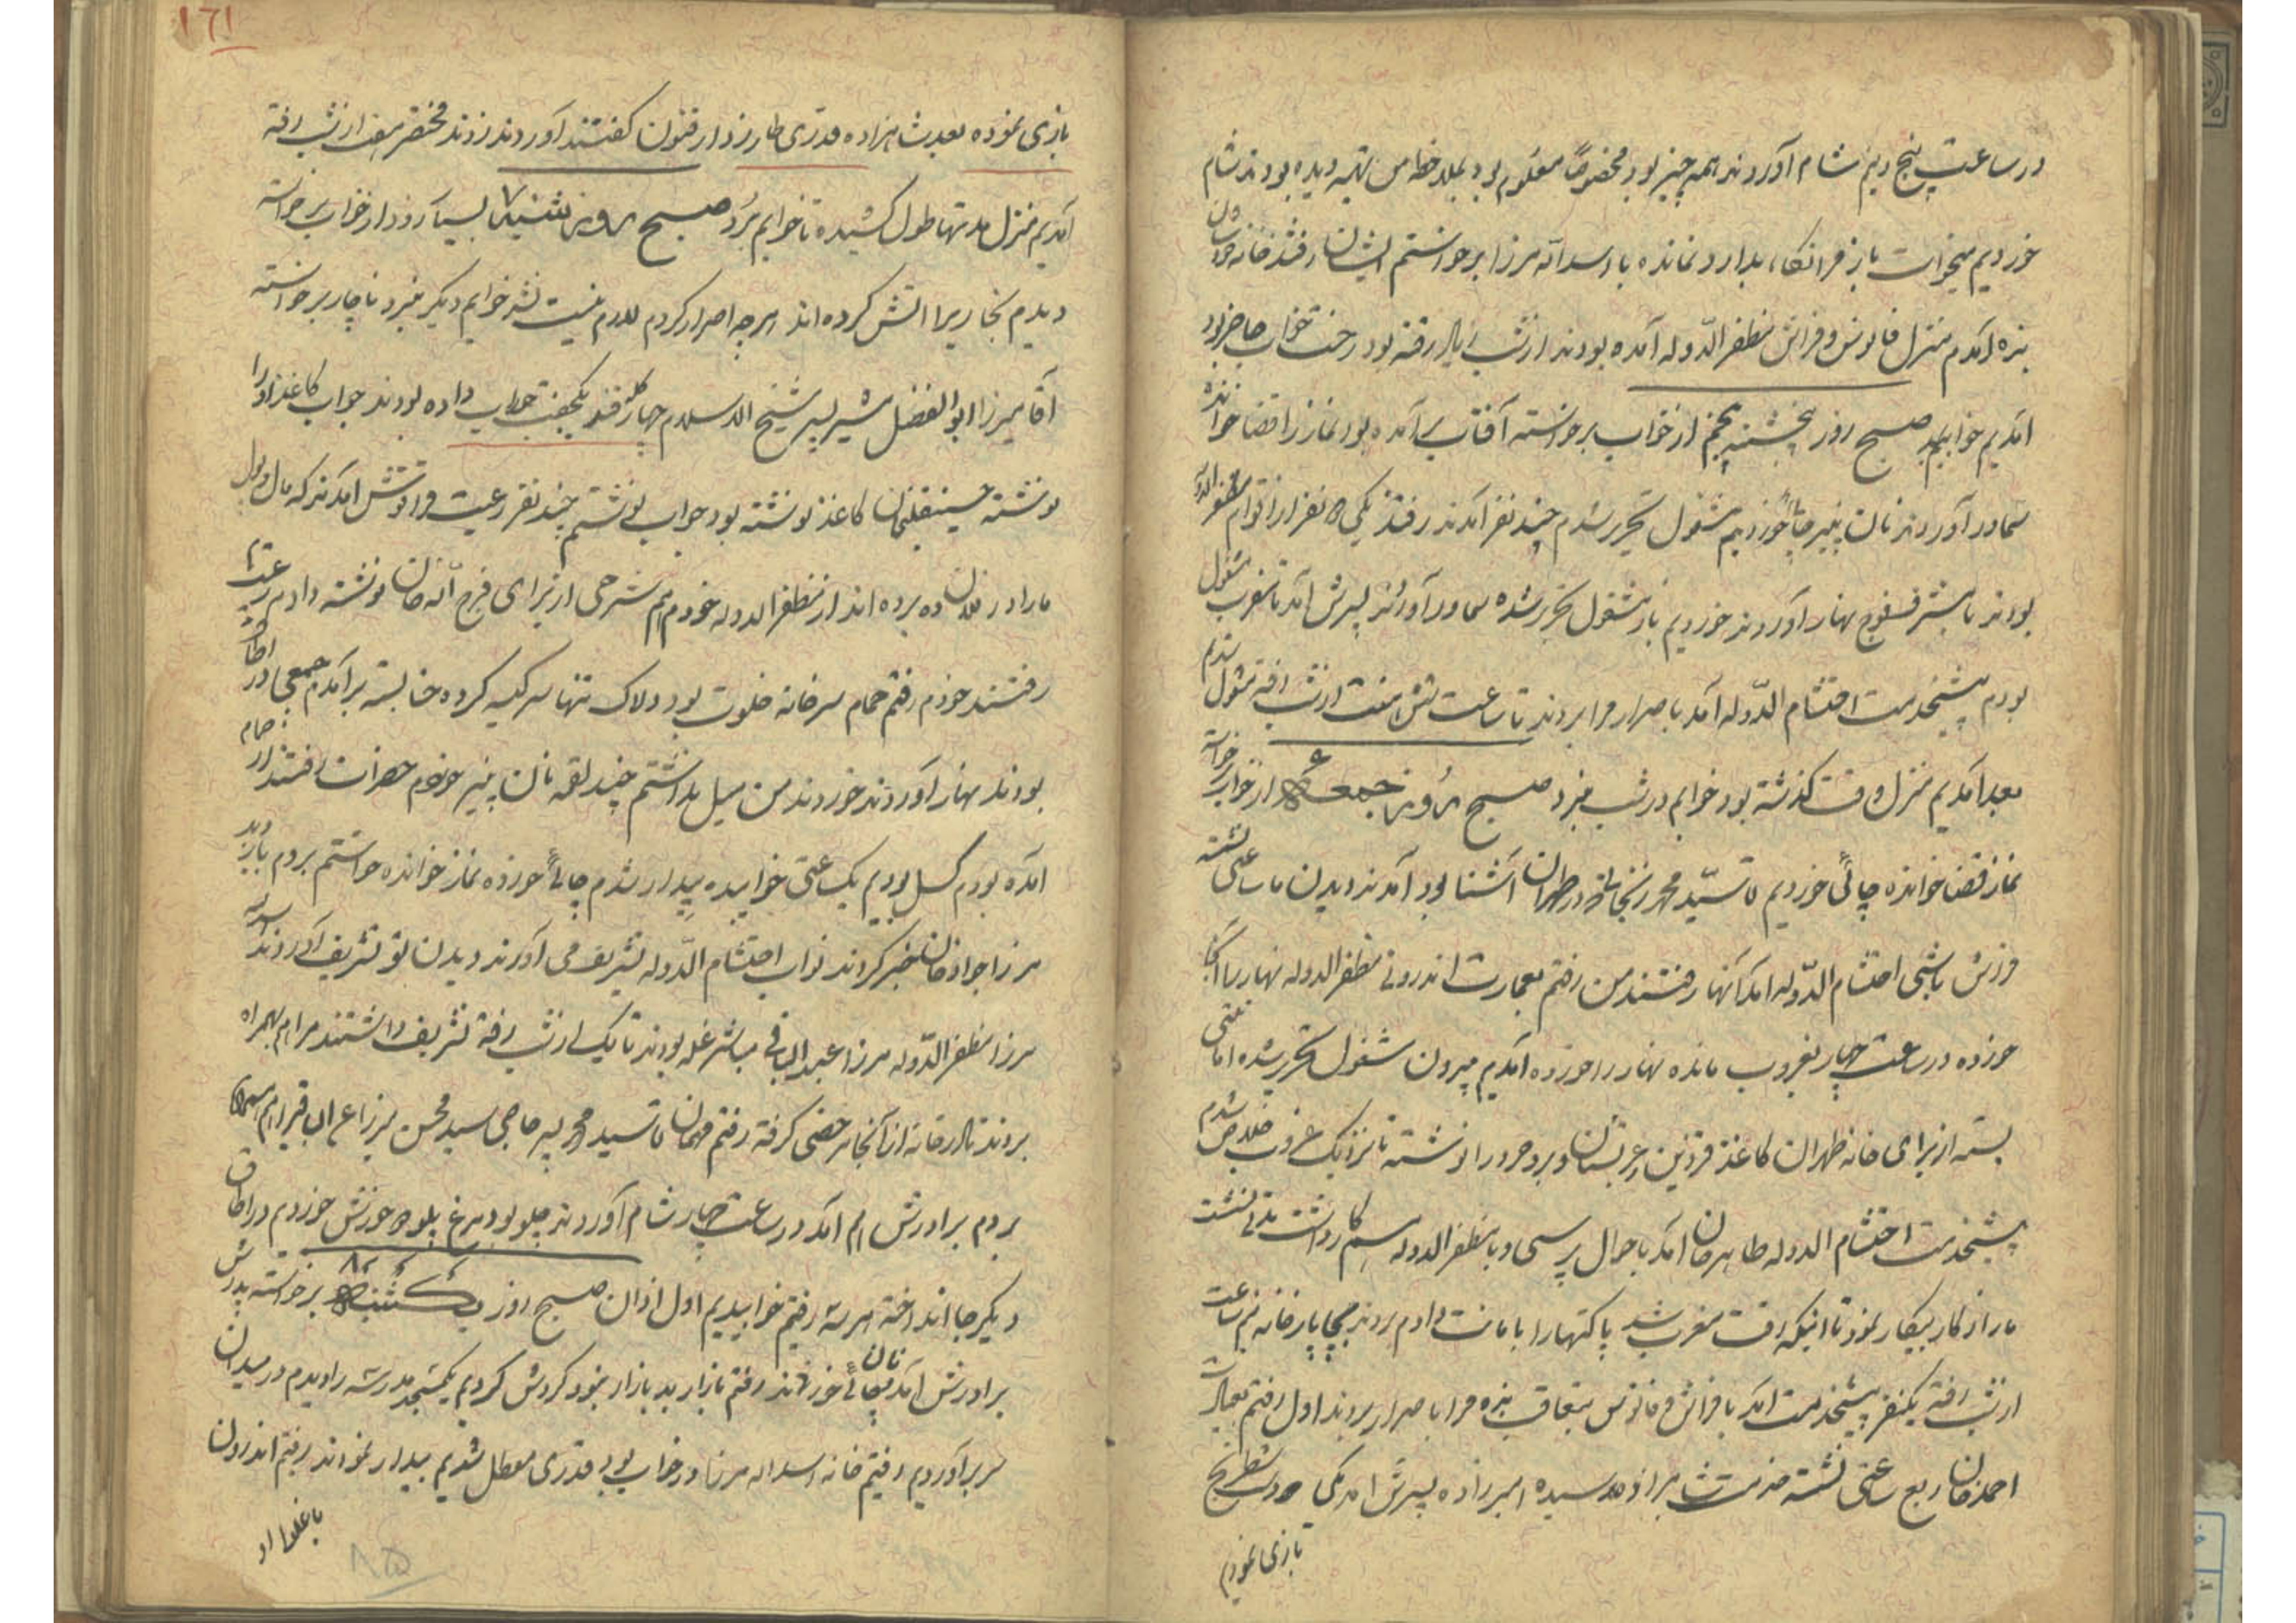 در ساعت پنج و نیم شام آوردند همه چیز بود مخصوصاً معلوم بود تهیه دیده بودند شام
خوردیم میخواست باز فرا نگاه بدارد نمانده با اسداله میرزا برخواستم ایشان رفتند خانه خودشان
بنده آمدم منزل فانوس و فراش مظفرالدوله آمده بودند از شب رفته بود رخت خواب حاضر بود
آمدیم خوابیدیم صبح روز پنجشنبه پنجم از خواب برخواسته آفتاب برآمده بود نماز را قضا خوانده
سماور آوردند نان پنیر چائی خوردیم مشغول تحریر شدم چند نفر آمدند رفتند یکی دو نفر از اقوام مظفرالدوله
بودند نهار آوردند خوردیم باز مشغول تحریر شده سماور آوردند پسرش آمد تا مغرب مشغول
بودم پیشخدمت احتشام الدوله آمد باصرار مرا بردند تا ساعت شش هفت از شب رفته مشغول شدم
بعد آمدیم منزل وقت گذشته بود خوابم درست نبرد صبح روز جمعه ۶ از خواب برخواسته
نماز قضا خوانده چائی خوردیم آقا سید محمد زنجانی در طهران آشنا بود آمدند دیدن ما ساعتی نشسته
فراش باشی احتشام الدوله آمد آنها رفتند من رفتم بعمارت اندرونی مظفرالدوله نهار را آنجا
خورده در ساعت چهار بغروب مانده نهار را خورده آمدیم بیرون مشغول تحریر شده امانتی
بسته از برای خانه طهران کاغذ قزوین و عربستان و بروجرد را نوشته تا نزدیک غروب خلاص شدم
پیشخدمت احتشام الدوله طاهر خان آمد باحوال پرسی و با مظفرالدوله هم کار داشت مدتی نشست
ما را از کار بیکار نمود تا اینکه وقت مغرب شد پاکتها را با امانت دادم بردند بچاپارخانه نیم ساعت
از شب رفته یکنفر پیشخدمت آمد با فراش و فانوس بتعاقب بنده مرا باصرار بردند اول رفتم بعمارت
احمد خان ربع ساعتی نشسته خدمت شاهزاده رسیده امیرزاده پسرش آمد یکی دو دست شطرنج
بازی نمودیم
۱۶۱
بازی نموده بعد شاهزاده قدری طار زدار فنون گفتند آوردند زدند مختصر هفت از شب رفته
آمدیم منزل مدتها طول کشیده تا خوابم برد صبح روز شنبه ۷ بسیار زود از خواب برخواسته
دیدم بخاری را آتش کرده اند هر چه اصرار کردم لازم نیست نشد خوابم دیگر نبرد ناچار برخواسته
آقا میرزا ابوالفضل پسر شیخ الاسلام چهار کله قند یکجفت داده بودند جواب کاغذ او را
نوشته حسینقلیخان کاغذ نوشته بود جواب نوشتم چند نفر رعیت آمدند که مال و پول
ما را در فلان ده برده اند از مظفرالدوله خودم هم شرحی از برای فرج اله خان نوشته دادم رعیتها
رفتند خودم رفتم حمام سرخانه خلوت بود دلاک تنها سر کیسه کرده حنا بسته برآمدم جمعی در اطاق
بودند نهار آوردند خوردند من میل نداشتم چند لقمه نان پنیر خوردم حضرات رفتند از حمام
آمده بودم کسل بودم یک ساعتی خوابیده بیدار شدم چائی خورده نماز خوانده خواستم بروم بازدید
میرزا جواد خان خبر کردند نواب احتشام الدوله تشریف می آورند دیدن تو تشریف آوردند اسداله
میرزا مظفرالدوله میرزا عبدالباقی مباشر غله بودند تا یک از شب رفته تشریف داشتند مرا هم بهمراه
بردند تا در خانه از آنجا مرخصی گرفته رفتم مهمان آقا سید محمد پسر حاجی سید محسن
بردم برادرش هم آمد در ساعت چهار شام آوردند چلو بود مرغ پلو دو خورش خوردیم در اطاق
دیگر جا انداخته هر سه رفتیم خوابیدیم اول اذان صبح روز یکشنبه ۸ برخواسته پدرش
برادرش آمد نان چائی خوردند رفتم بازار بد بازار نبود گردش کردیم یک مسجد مدرسه را دیدم در میدان
سر برآوردیم رفتیم خانه اسداله میرزا در خواب بود قدری معطل شدیم بیدار نمودند رفتم اندرون
۸۵